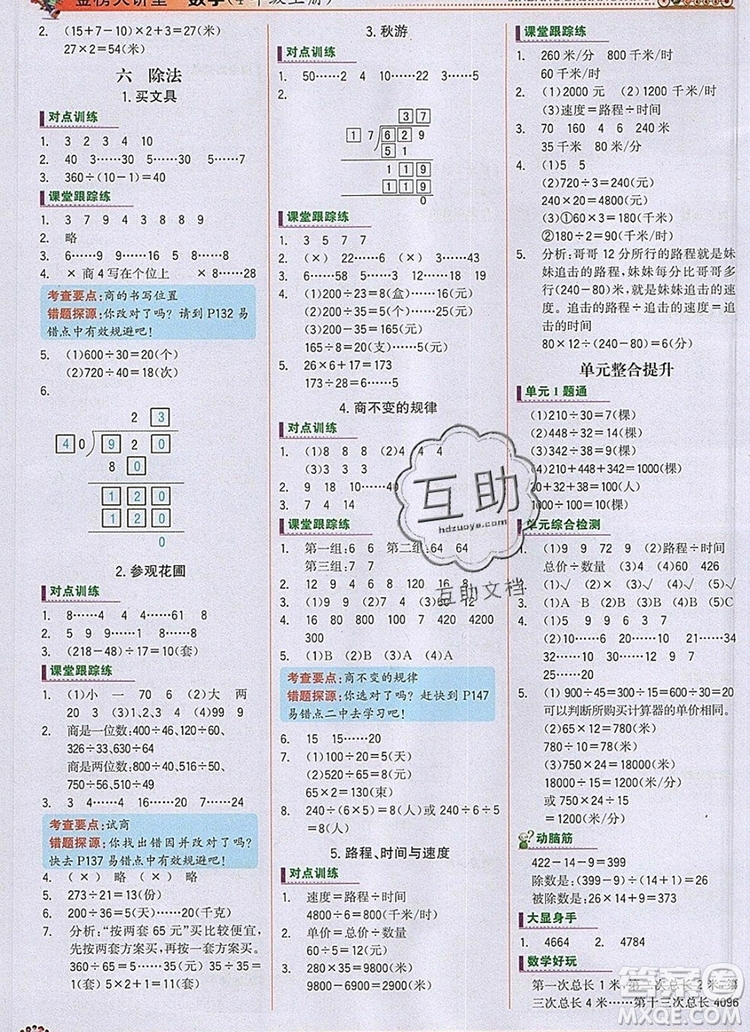 2. (15+7-10)×2+3=27(米)
27×2=54(米)
六 除法
1.买文具
对点训练
1. 3 2 3 4 10
2. 40 3……30 5……30 7……5
3. 360÷(10-1)=40
课堂跟踪练
1. 3 7 9 4 3 8 8 9
2. 略
3. 6……9 9……5 16……5 8……5
4. × 商4写在个位上 × 8……28
考查要点:商的书写位置
错题探源:你改对了吗?请到 P132 易
错点中有效规避吧!
5. (1)600÷30=20(个)
(2)720÷40=18(次)
6.
2 3
4 0 9 2 0
8 0
1 2 0
1 2 0
0
2. 参观花圃
对点训练
1. 8……4 4……4 6……4 8……8
2. 3……15 4……66 5……17 8
3. (218-48)÷17=10(套)
课堂跟踪练
1. (1)小 一 70 6 (2)大 两
20 3 (3)5 4 (4)99 9
2. 商是一位数:400÷46、120÷60、
326÷33、630÷68
商是两位数:800÷40、516÷50、
360÷33、430÷38
3. 3……4 7……7 7……4 4……15
考查要点:试商
错题探源:你找出错因并改对了吗?
快去 P137 易错点中有效规避吧!
4. (×) 略 (×) 略
5. 273÷21=13(份)
6. 200÷36=5……20(千克)
7. 分析:“按两套 65 元”买比较便宜,
先按两套方案买,再按一套方案买。
360÷65=5……35(元)
35÷35=1(套) 5×2+1=11(套)
3. 秋游
对点训练
1. 50……2 4 5 4……2
2.
3 7
1 7 6 2 9
5 1
1 1 9
1 1 9
0
课堂跟踪练
1. 3 5 7 7
2. (×) 22……6 (×) 4……43
3. (1)200÷23=8(盒)……16(元)
(2)210÷35=6(个)……25(元)
(3)200-35=165(元)
165÷35=4(支)……25(元)
4. 26×6+17=173
173÷28=6……5
4. 商不变的规律
对点训练
1. (1)40 8 (2)4 4 (3)10 10
2. 9 90 9 14 14 140
3. 7 4 14
课堂跟踪练
1. 第一组:6 6 第二组:64 64
第三组:7 7
2. 12 9 4 8 120 90 40 80
3. (1)A (2)B (3)B (4)B
4. 16 160 1600 32 320
3200
5. (1)A (2)C (3)B (4)A
考查要点:商不变的规律
错题探源:你选对了吗?赶快到 P147
易错点二中去学习吧!
6. 15 15……20
7. (1)100÷20=5(天)
(2)520÷40=13(棵)
65×2=130(束)
8. 240÷(6-4)=120
240÷(6÷3)=120
5. 路程、时间与速度
对点训练
1. 速度=路程÷时间
4800÷6=800(千米/时)
2. 单价=总价÷数量
60÷5=12(元)
3. 280×35=9800(米)
9800-6900=2900(米)
课堂跟踪练
1. 260 米/分 800 千米/时
60 千米/时
2. (1)2000 元 (2)1000 米
(3)速度=路程÷时间
3. 70 米/分 440 千米/时
35 千米/时 80 千米/时
4. (1)5 5
(2)720÷3=240(千米/时)
240×20=4800(千米)
(3)①60×3=180(千米)
②180÷2=90(千米/时)
5. 分析:哥哥 12 分所行的路程就是妹
妹追击的路程,妹妹每分比哥哥多行
的路程就是追击的速度,追击的时间
=追击的路程÷追击的速度。
80×12÷(240-80)=6(分)
单元整合提升
单元 1 题通
(1)210÷30=7(棵)
(2)448÷32=14(棵)
(3)442÷34=13(棵)
(4)210+448+342=1000(棵)
1000÷100=10(棵)
单元综合检测
1. (1)9 9 72 9 (2)路程÷时间
总价÷数量 (3)4 60 426
2. (1)√ (2)× (3)√ (4)×
3. (1)A B (2)B (3)B (4)A
4. 10 9 15……30
20……17 10……4 9……51
30……23 9……25
5. (1)900÷45=20(元/个)
可以判断所购买计算器的单价相同。
(2)65×12=780(米)
780÷10=78(米/分)
(3)能完成
18000÷24=750(米)
或 750×24=18000(米)
18000=18000
动脑筋
422-14-9=(399)
除数是:(399-9)÷(14+1)=26
被除数是:26×14+9=373
大显身手
1. 4664 2. 4784
数学好玩
第一次总长 1 米 第二次总长 2 米 第
三次总长 4 米……第十三次总长 4096
互助
hdzuoye.com
互助文档
MXQE.COM